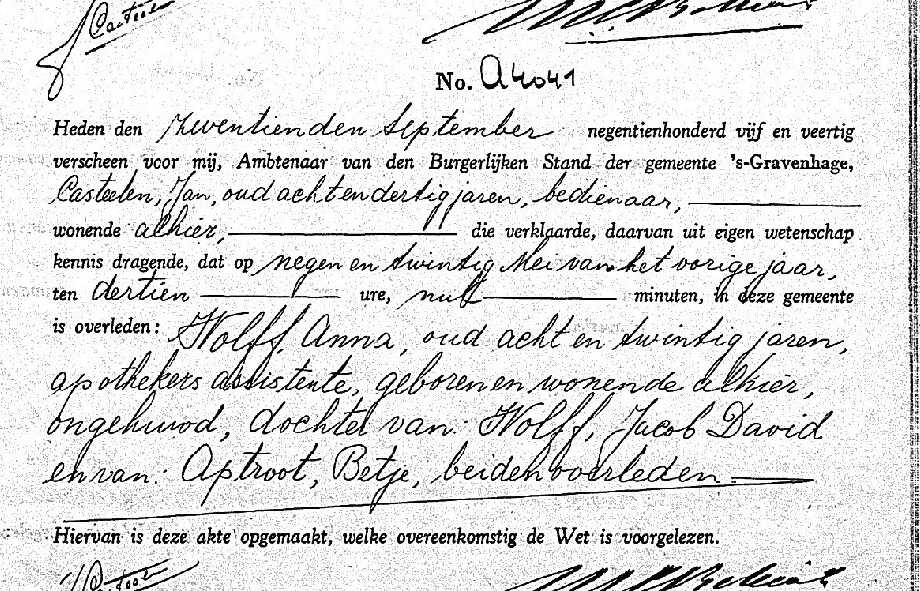 Casteelen
No. A4041
Heden den Zeventienden September negentienhonderd vijf en veertig
verscheen voor mij, Ambtenaar van den Burgerlijken Stand der gemeente 's-Gravenhage,
Casteelen, Jan, oud acht en dertig jaren, bedienaar,
wonende alhier, die verklaarde, daarvan uit eigen wetenschap
kennis dragende, dat op negen en twintig Mei van het vorige jaar,
ten dertien ure, nul minuten, in deze gemeente
is overleden: Wolff, Anna, oud acht en twintig jaren,
apothekers assistente, geboren en wonende alhier,
ongehuwd, dochter van: Wolff, Jacob David
en van: Aptroot, Betje, beiden overleden.
Hiervan is deze akte opgemaakt, welke overeenkomstig de Wet is voorgelezen.